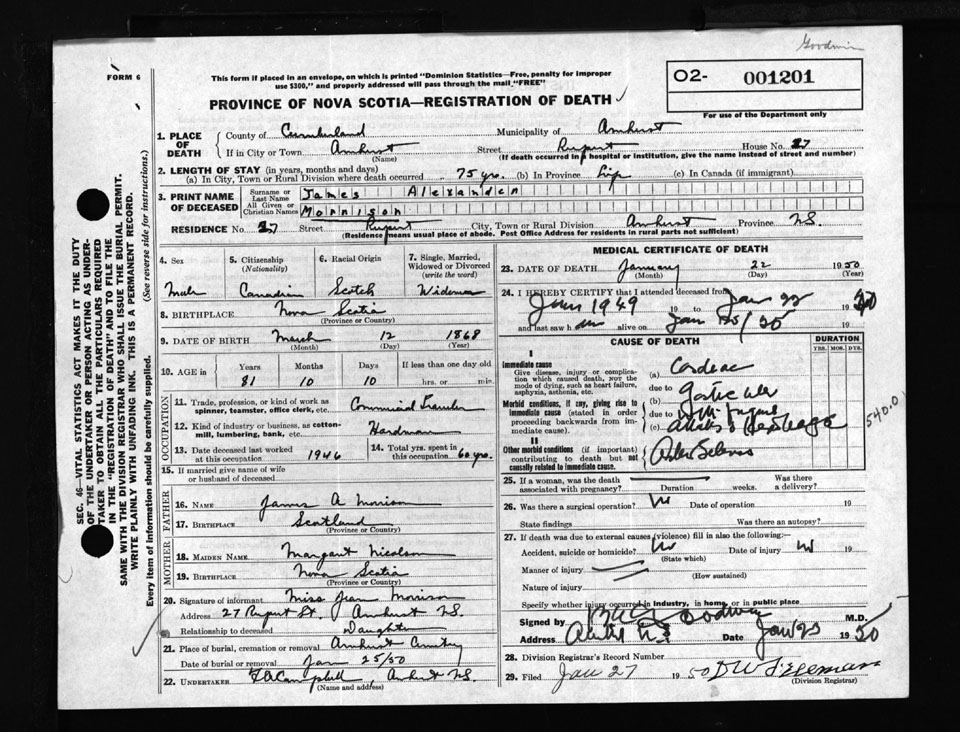 Goodwin
FORM 6
This form if placed in an envelope, on which is printed "Dominion Statistics—Free, penalty for improper
use $300," and properly addressed will pass through the mail "FREE"
O2- 001201
For use of the Department only
PROVINCE OF NOVA SCOTIA—REGISTRATION OF DEATH ✓
1. PLACE OF DEATH
County of Cumberland Municipality of Amherst
If in City or Town Amherst (Name) Street Rupert House No. 27
(If death occurred in hospital or institution, give the name instead of street and number)
2. LENGTH OF STAY (in years, months and days)
(a) In City, Town or Rural Division where death occurred 75 yrs. (b) In Province Life (c) In Canada (if immigrant)
3. PRINT NAME OF DECEASED
Surname or Last Name James Alexander
All Given or Christian Names Morrison
RESIDENCE No. 27 Street Rupert City, Town or Rural Division Amherst Province N.S.
(Residence means usual place of abode. Post Office Address for residents in rural parts not sufficient)
4. Sex 5. Citizenship (Nationality) 6. Racial Origin 7. Single, Married, Widowed or Divorced (write the word)
Male Canadian Scotch Widower
8. BIRTHPLACE Nova Scotia
(Province or Country)
9. DATE OF BIRTH March 12 1868
(Month) (Day) (Year)
10. AGE Years Months Days If less than one day old
81 10 10 hrs. or min.
OCCUPATION
11. Trade, profession, or kind of work as
spinner, teamster, office clerk, etc. Commercial Traveller
12. Kind of industry or business, as cotton-
mill, lumbering, bank, etc. Hardware
13. Date deceased last worked
at this occupation 1946
14. Total yrs. spent in
this occupation 60 yrs.
15. If married give name of wife
or husband of deceased
FATHER
16. Name James A Morrison
17. Birthplace Scotland
(Province or Country)
MOTHER
18. Maiden Name Margaret Nicolson
19. Birthplace Nova Scotia
(Province or Country)
20. Signature of informant Miss Jean Morrison
Address 27 Rupert St. Amherst N.S.
Relationship to deceased Daughter
21. Place of burial, cremation or removal Amherst Cemetery
Date of burial or removal Jan 25/50
22. UNDERTAKER Campbell, Amherst N.S.
(Name and address)
MEDICAL CERTIFICATE OF DEATH
23. DATE OF DEATH January 22 1950
(Month) (Day) (Year)
24. I HEREBY CERTIFY that I attended deceased from
Jan 1949 19 to Jan 22 1950
and last saw h im alive on Jan 19
CAUSE OF DEATH
DURATION
YRS. MOS. DYS.
I
Immediate cause
Give disease, injury or complica-
tion which caused death, not the
mode of dying, such as heart failure,
asphyxia, asthenia, etc.
(a) Cardiac
due to
Morbid conditions, if any, giving rise to
immediate cause (stated in order
proceeding backwards from im-
mediate cause).
(b)
due to
(c)
540.0
II
Other morbid conditions (if important)
contributing to death but not
causally related to immediate cause.
25. If a woman, was the death
associated with pregnancy? Duration weeks. Was there
a delivery?
26. Was there a surgical operation? Date of operation 19
State findings Was there an autopsy?
27. If death was due to external causes (violence) fill in also the following:—
Accident, suicide or homicide? Date of injury 19
(State which)
Manner of injury
(How sustained)
Nature of injury
Specify whether injury occurred in industry, in home, or in public place
Signed by Goodwin M.D.
Address Date Jan 23 1950
28. Division Registrar's Record Number
29. Filed Jan 27 1950
(Division Registrar)
SEC. 46—VITAL STATISTICS ACT MAKES IT THE DUTY
OF THE UNDERTAKER OR PERSON ACTING AS UNDER-
TAKER TO OBTAIN ALL THE PARTICULARS REQUIRED
IN THE "REGISTRATION OF DEATH" AND TO FILE THE
SAME WITH THE DIVISION REGISTRAR WHO SHALL ISSUE THE BURIAL PERMIT.
WRITE PLAINLY WITH UNFADING INK. THIS IS A PERMANENT RECORD.
Every item of information should be carefully supplied. (See reverse side for instructions.)